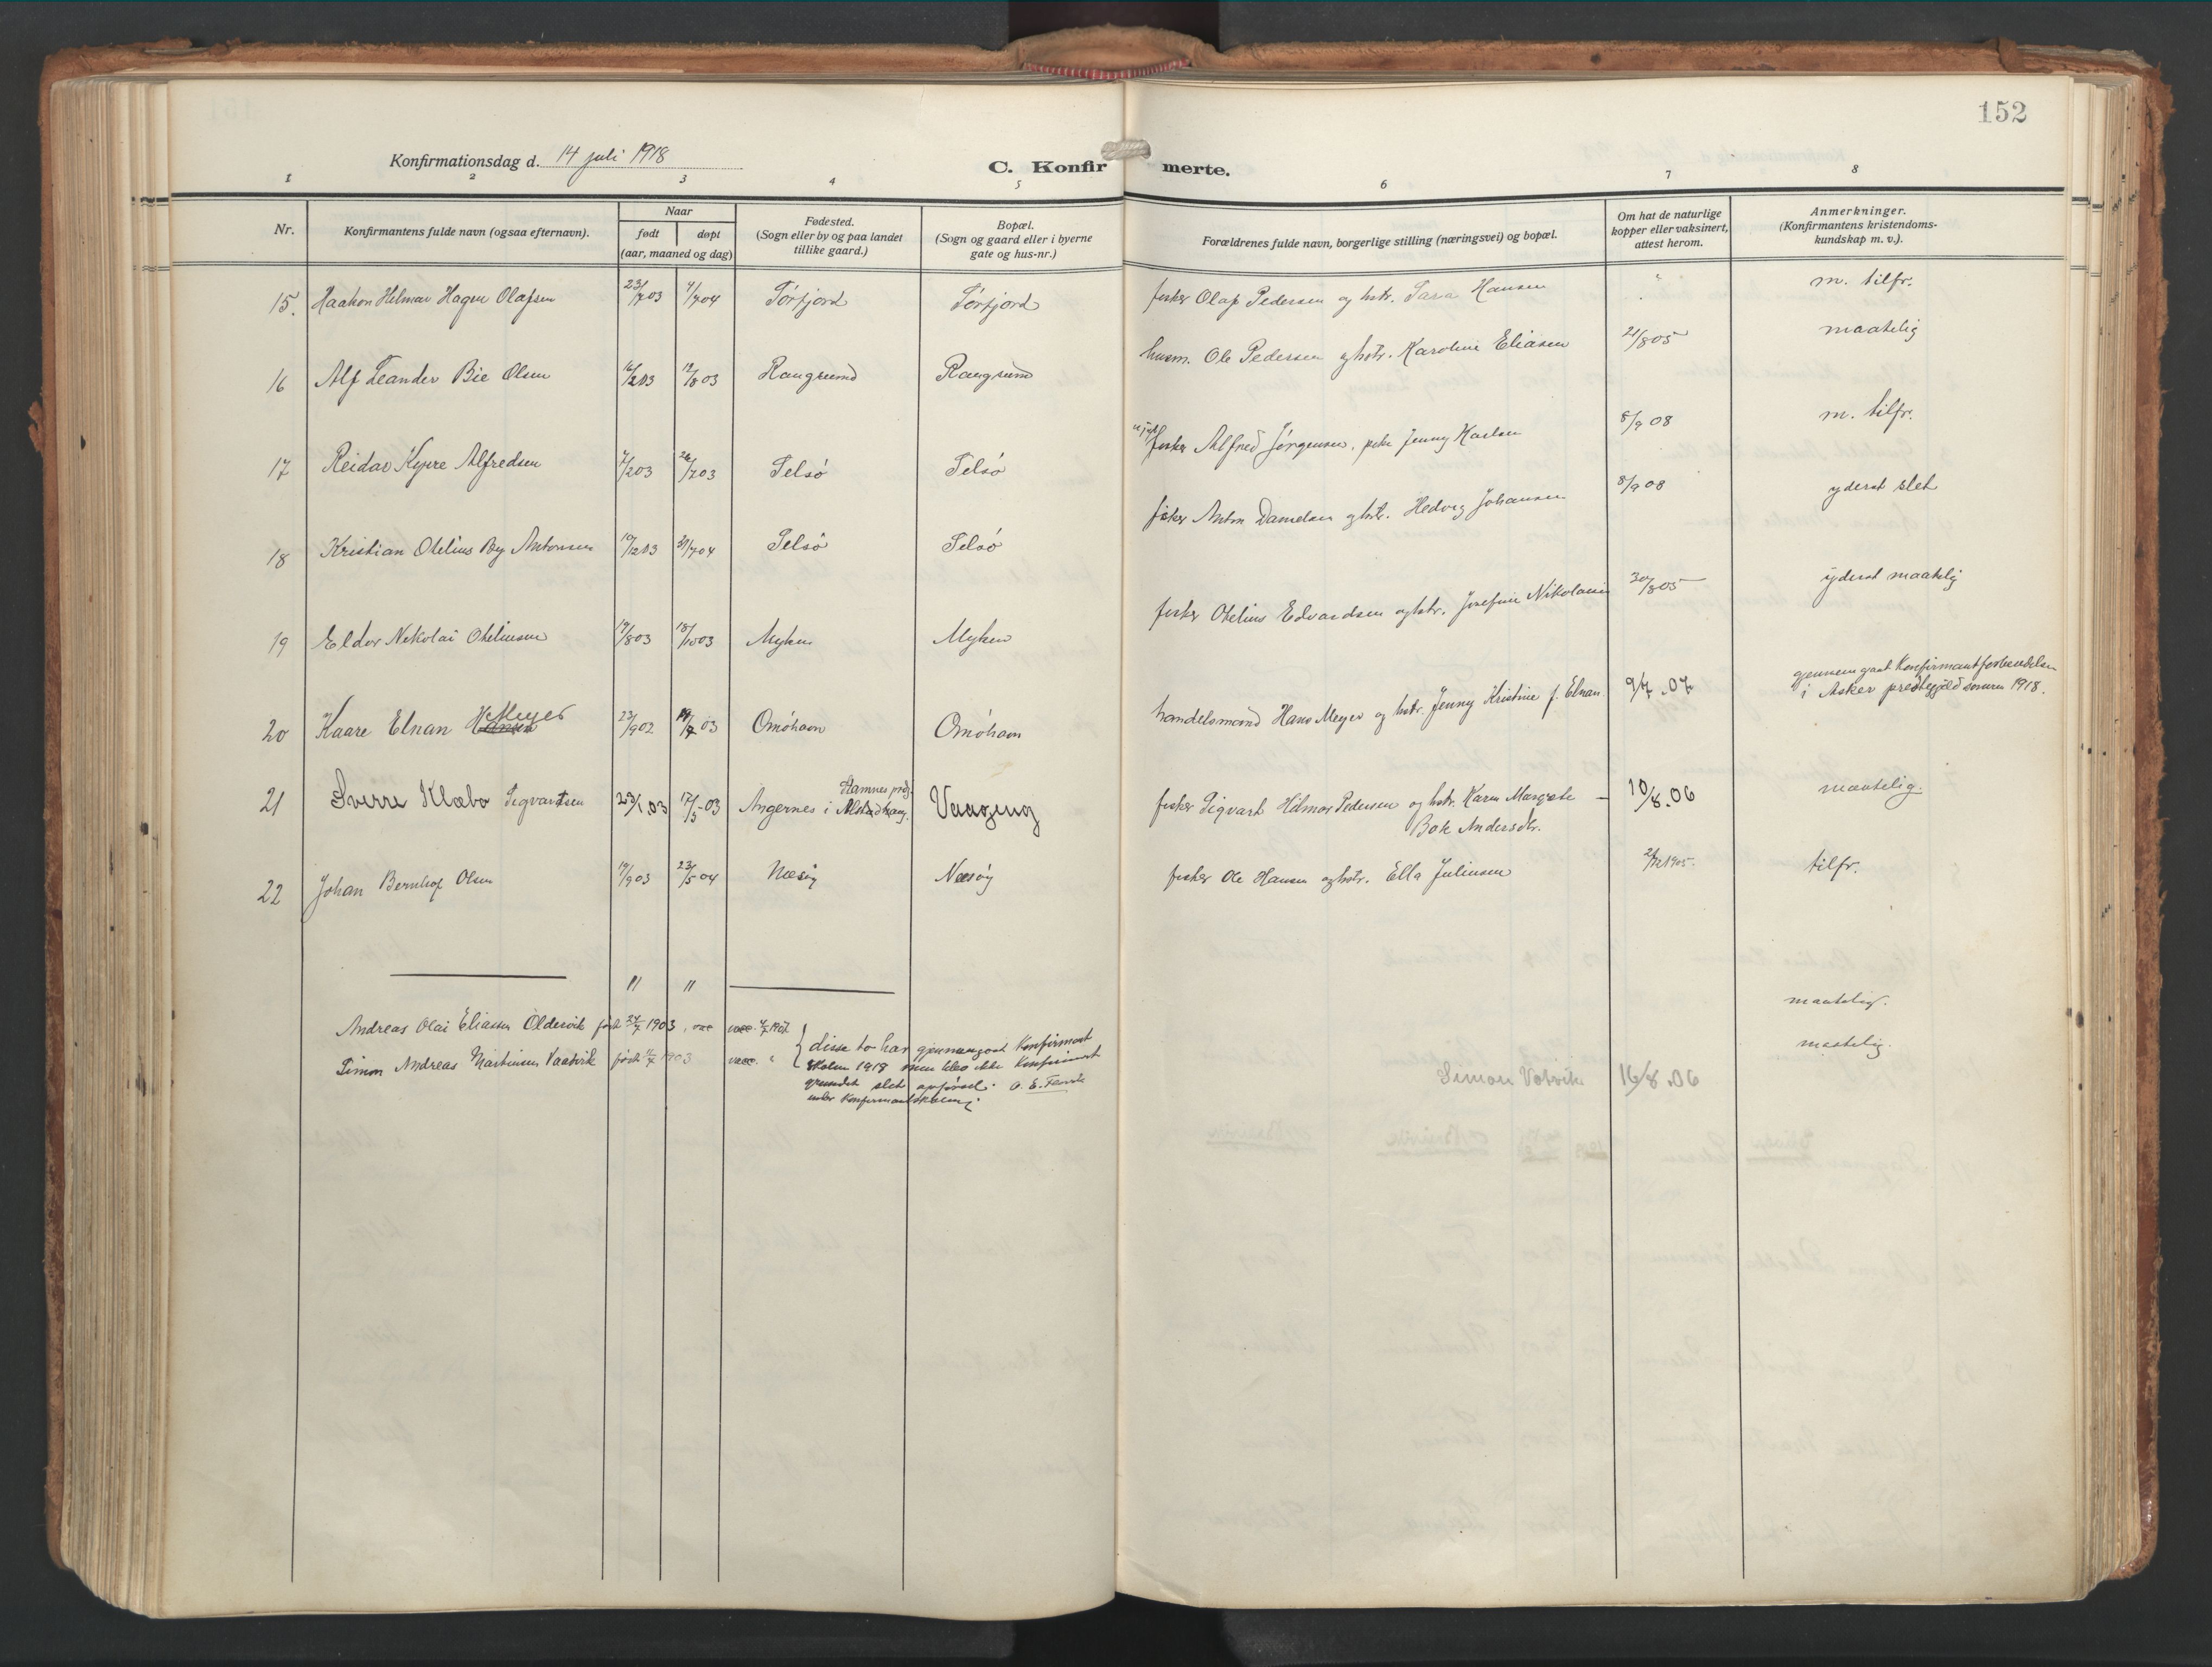 152
Konfirmationsdag d. 14 juli 1918
C. Konfirmerte.
1 2 3 4 5 6 7 8
Nr.
Konfirmantens fulde navn (ogsaa efternavn).
Naar
født døpt
(aar, maaned og dag)
Fødested.
(Sogn eller by og paa landet
tillike gaard.)
Bopæl.
(Sogn og gaard eller i byerne
gate og hus-nr.)
Forældrenes fulde navn, borgerlige stilling (næringsvei) og bopæl.
Om hat de naturlige
kopper eller vaksinert,
attest herom.
Anmerkninger.
(Konfirmantens kristendoms-
kundskap m. v.).
15. Haakon Helmar Hagen Olafsen 23/ 03 04 Törfjord Törfjord fisker Olaf Pedersen og hstr. Sara Hansen " m. tilfr.
16 Alf Leander Bie Olsen 16/2 03 12/8 03 Rangsund Rangsund husm. Ole Pedersen og hstr. Karoline Eliasen 21/8 05 maatelig
17 Reidar Kyrre Alfredsen 7/2 03 26/7 03 Selsö Selsö ugift fisker Alfred Jörgensen, pike Jenny Karlsen 8/9 08 m. tilfr.
18 Kristian Otelius By Antonsen 10/12 03 31/7 04 Selsö Selsö fisker Anton Danielsen og hstr. Hedvig Johansen 8/9 08 yderst slet
19 Eldor Nikolai Oteliussen 19/8 03 18/10 03 Myken Myken fisker Otelius Edvardsen og hstr. Josefine Nikolaisen 30/8 05 yderst maatelig
20 Kaare Elnan Hansen Meyer 23/9 02 19/7 03 Omöhavn Omöhavn handelsmand Hans Meyer og hstr. Jenny Kristine f. Elnan 9/7 .07 gjennemgaat Konfirmantforberedelsen
i Asker prestegjeld somren 1918.
21 Sverre Klæbo Sigvartsen 23/1 .03 17/5 -03 Angernes i Alstadhaug. Stamnes prgj. Vaageng fisker Sigvart Hilmar Pedersen og hstr. Karen Margrete
Bok Andersdtr. 10/8 .06 maatelig.
22 Johan Bernhof Olsen 19/9 03 23/5 04 Næsöy Næsöy fisker Ole Hansen og hstr. Ella Juliussen 21/12 1905. tilfr.
" "
Andreas Olai Eliassen Oldervik født 24/7 1903, vac vacc. 1907 maatelig.
Simon Andreas Martinsen Vaatvik født 11/7 1903 vacc. " maatelig.
disse to har gjennemgaat Konfirmant
skolen 1918 men blev ikke Konfirmert
grundet slet opførsel
under Konfirmantskolen.
Simon Votvik 16/8 .06